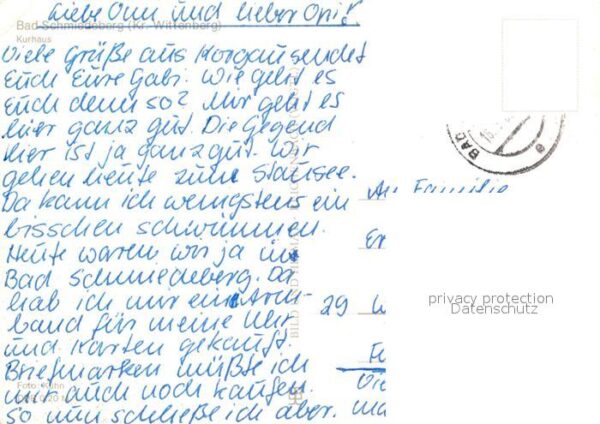 Liebe Omi und lieber Opi!
Bad Schmiedeberg (Kr. Wittenberg)
Kurhaus
Viele Grüße aus Morgau sendet
Euch Eure Gabi. Wie geht es
Euch denn so? Mir geht es
hier ganz gut. Die Gegend
hier ist ja ganz gut. Wir
gehen heute zum Stausee.
Da kann ich wenigstens ein
bisschen schwimmen.
Heute waren wir ja in
Bad Schmiedeberg. Da
hab ich mir ein Arm-
band für meine Uhr
und Karten gekauft.
Briefmarken müßte ich
mir auch noch kaufen.
So nun schließe ich aber.
Foto: Kühn
BILD UND HEIMAT
BAD
An Familie
29
privacy protection
Datenschutz